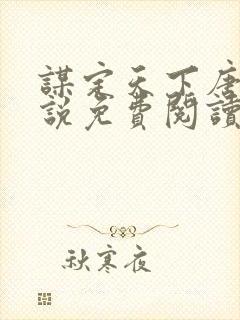 謀定天下唐
說免費閱讀
秋寒夜